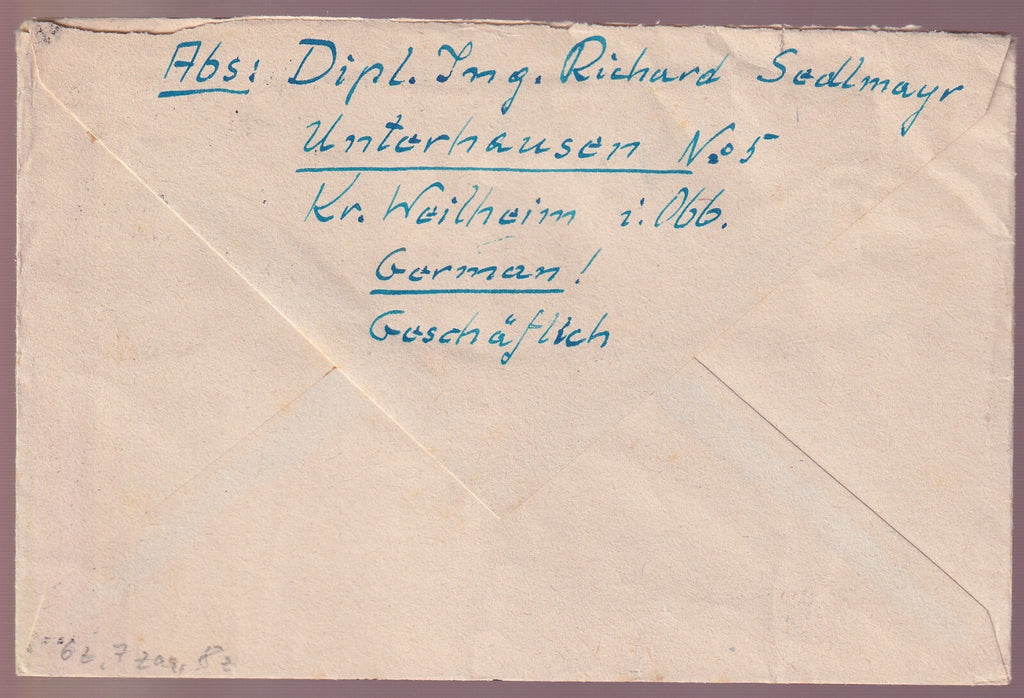 Abs: Dipl. Ing. Richard Sedlmayr
Unterhausen No 5
Kr. Weilheim i. Obb.
German!
Geschäftlich
6z, 7 zag, 8z